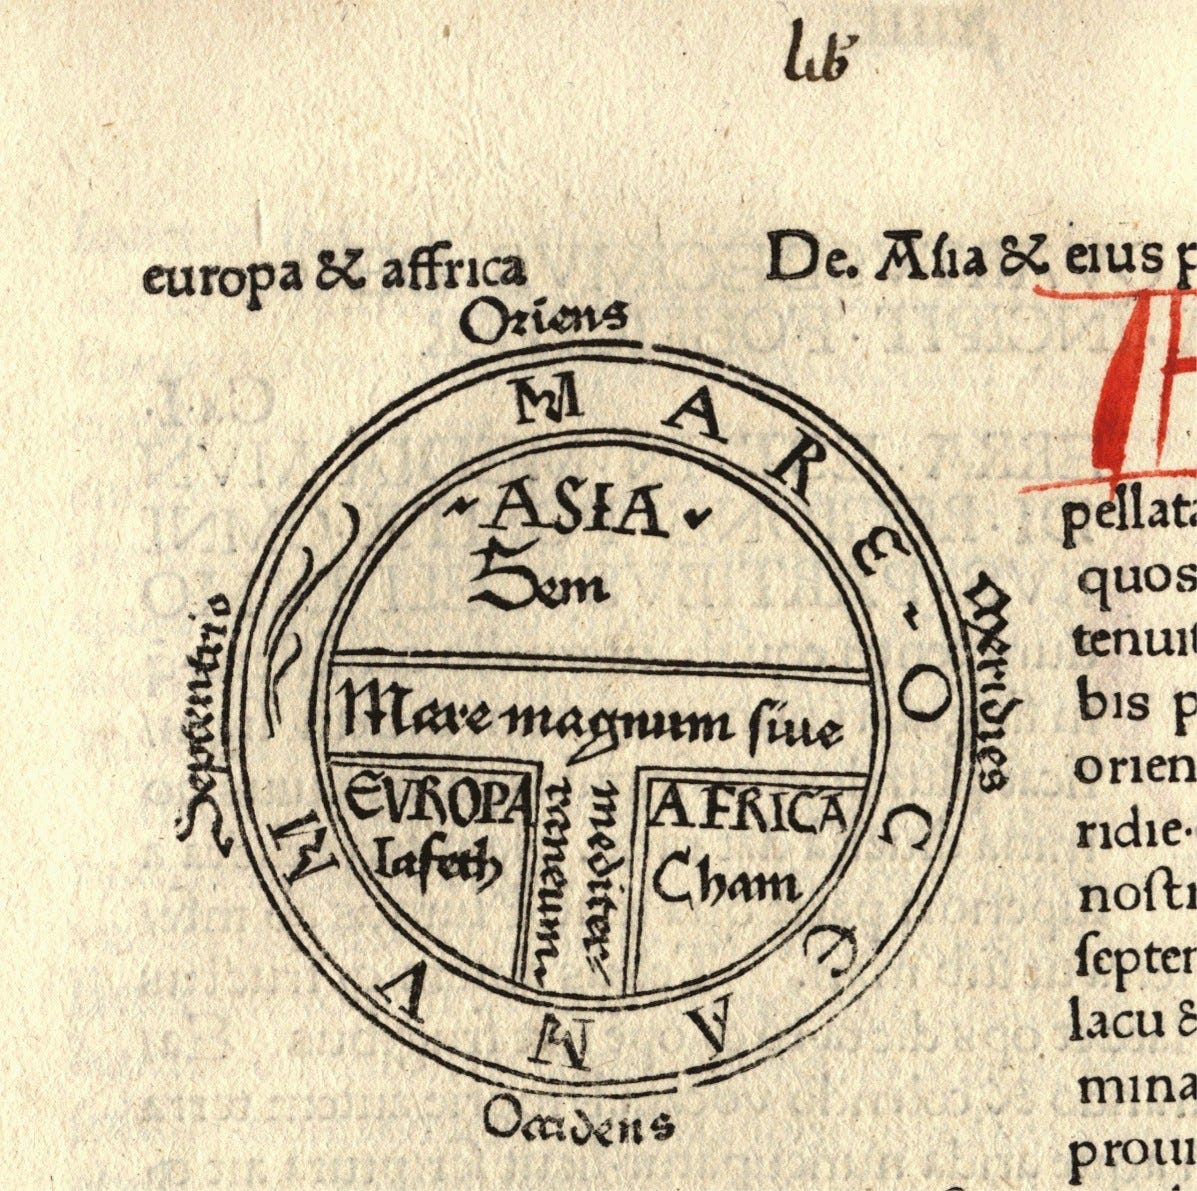 lib
europa & affrica
De. Aſia & eius p
Oriens
MARE OCCEANVM
ASIA
Sem
Septentrio
Meridies
Mare magnum ſiue
mediter
raneum
EVROPA
Iafeth
AFRICA
Cham
Occidens
pellata
quos
tenuit
bis p
orien
ridie·
noſtr
ſepten
lacu &
mina
proui